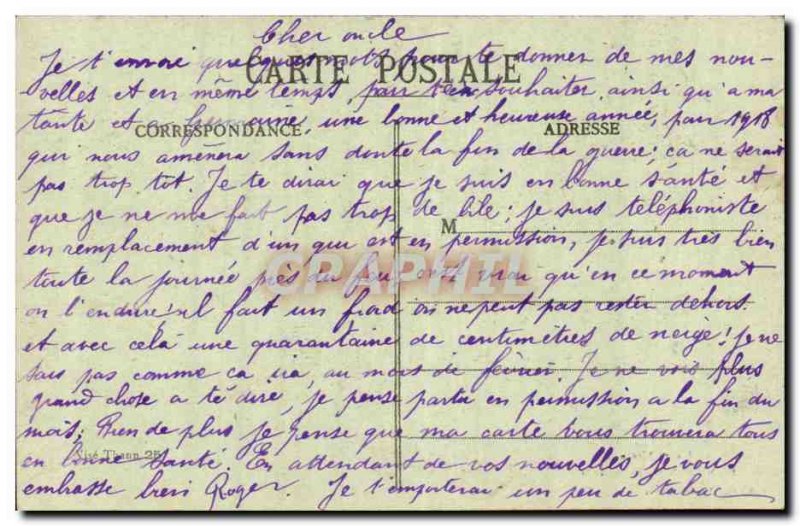 Cher oncle
Je t'envoie quelques mots pour te donner de mes nou-
CARTE POSTALE
velles et en même temps, pour t'en souhaiter, ainsi qu'a ma
tante et a, une bonne et heureuse année, pour 1918
CORRESPONDANCE
ADRESSE
qui nous amènera sans doute la fin de la guerre; ça ne serait
pas trop tôt. Je te dirai que je suis en bonne santé et
que je ne me fait pas trop de bile; je suis téléphoniste
M
en remplacement d'un qui est en permission, je suis très bien
toute la journée près du feu, c'est vrai qu'en ce moment
CPAPHIL
on l'endure! il fait un froid on ne peut pas rester dehors.
et avec celà une quarantaine de centimètres de neige! Je ne
sais pas comme ça ira, au mois de février. Je ne vois plus
grand chose a te dire, je pense partir en permission a la fin du
mois; Rien de plus je pense que ma carte vous trouvera tous
Visé Thann 25
en bonne santé. En attendant de vos nouvelles, je vous
embrasse bien Roger. Je t'emporterai un peu de tabac